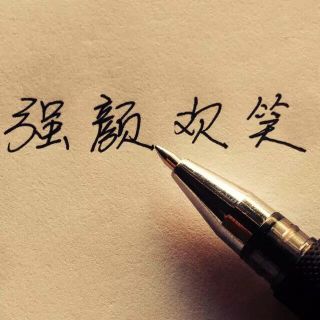 强颜欢笑